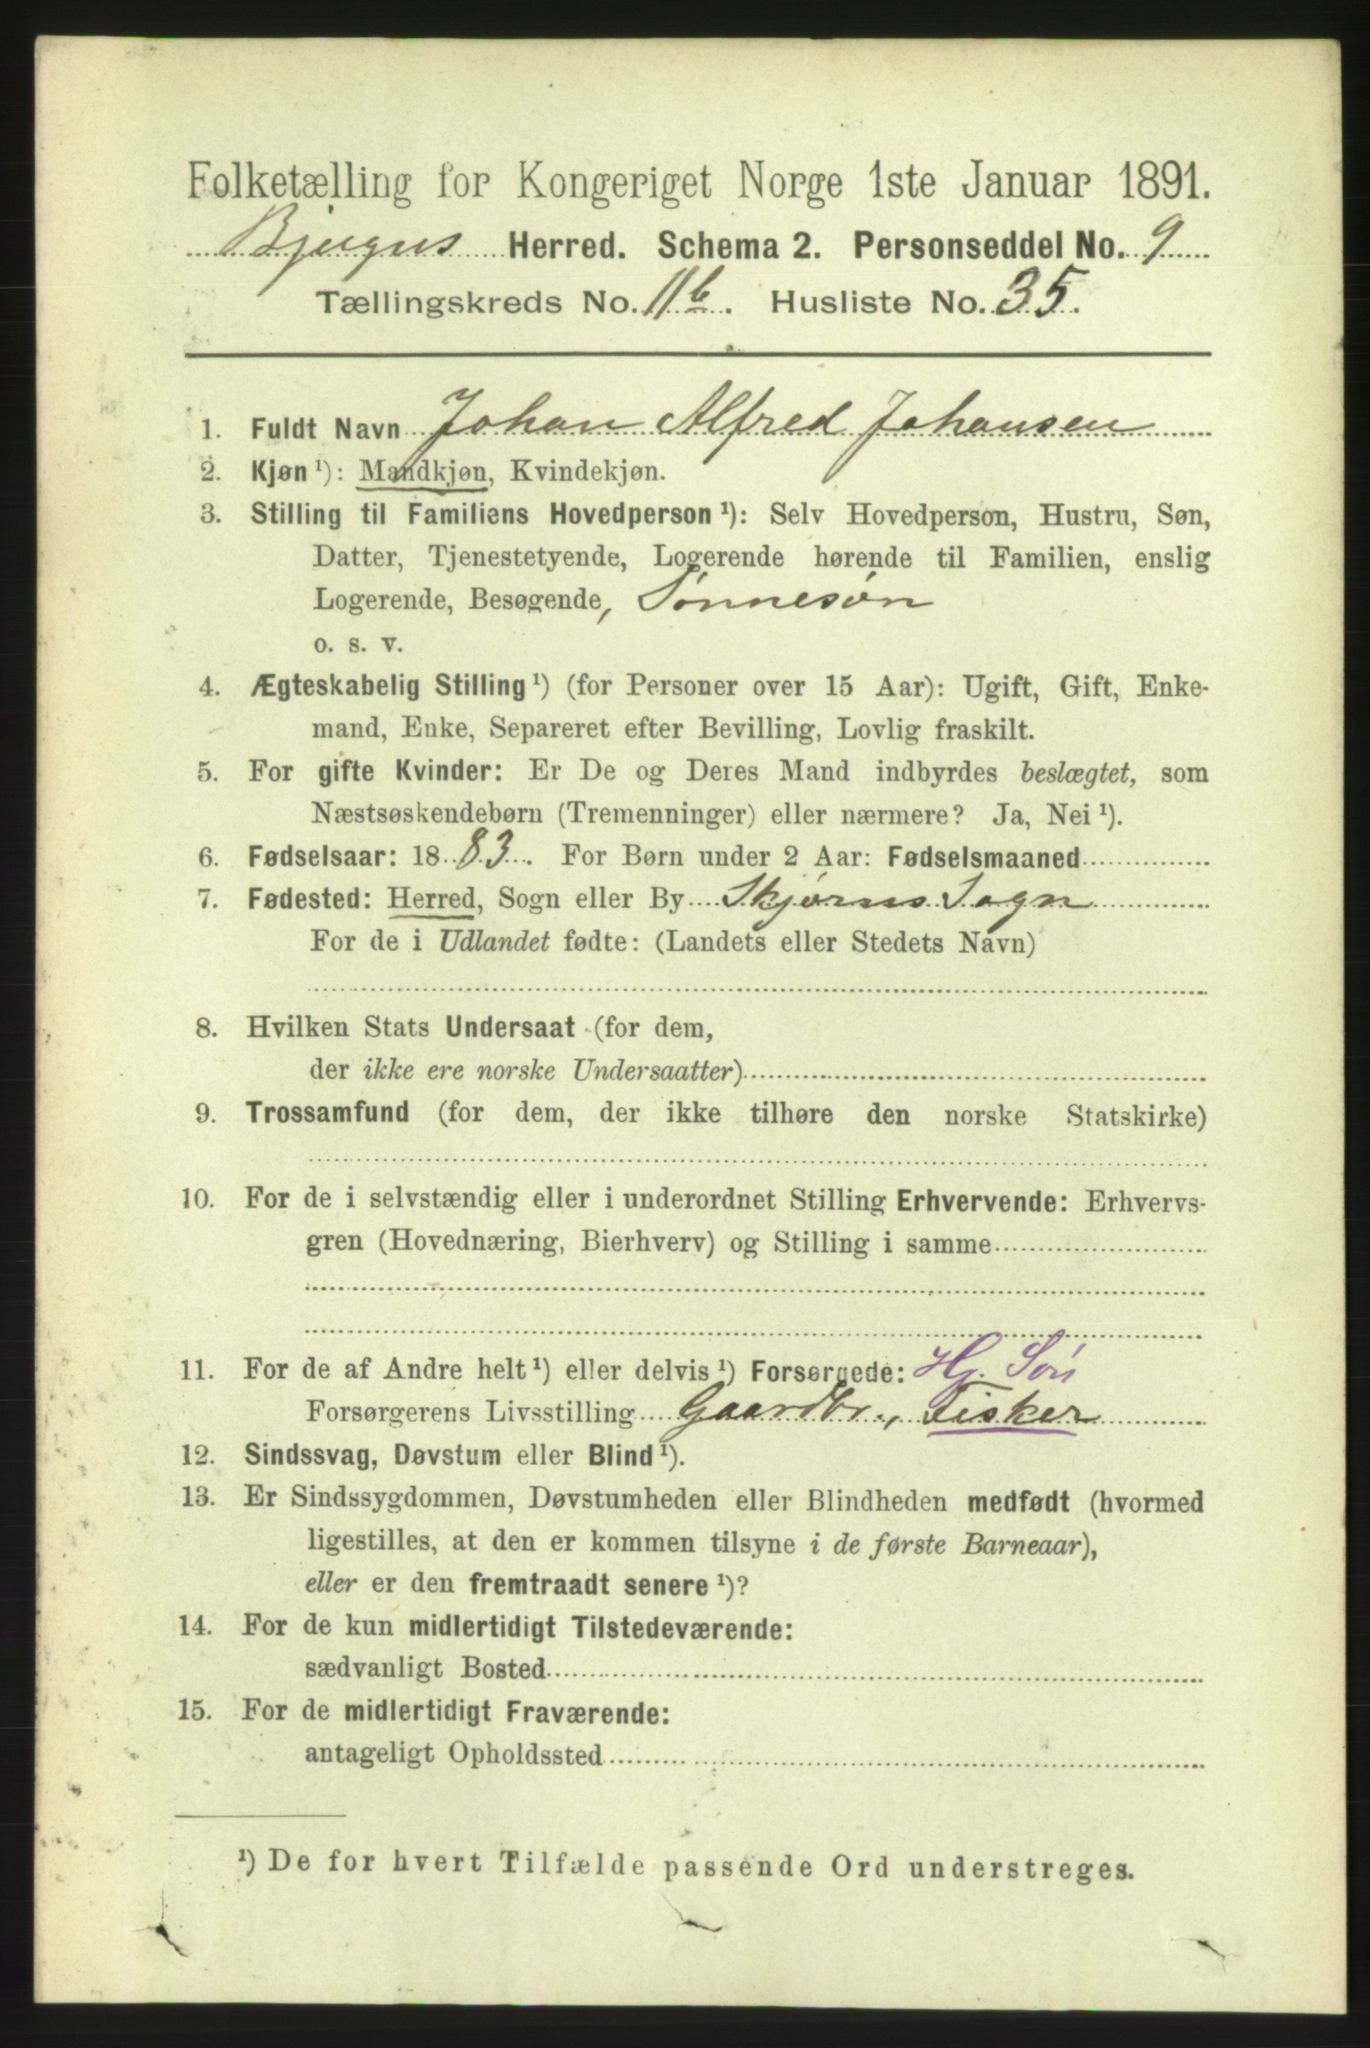 Folketælling for Kongeriget Norge 1ste Januar 1891.
Bjugns Herred. Schema 2. Personseddel No. 9
Tællingskreds No. 11b. Husliste No. 35.
1. Fuldt Navn Johan Alfred Johansen
2. Kjøn¹): Mandkjøn, Kvindekjøn.
3. Stilling til Familiens Hovedperson¹): Selv Hovedperson, Hustru, Søn,
Datter, Tjenestetyende, Logerende hørende til Familien, enslig
Logerende, Besøgende, Sønnesøn
o. s. v.
4. Ægteskabelig Stilling¹) (for Personer over 15 Aar): Ugift, Gift, Enke-
mand, Enke, Separeret efter Bevilling, Lovlig fraskilt.
5. For gifte Kvinder: Er De og Deres Mand indbyrdes beslægtet, som
Næstsøskendebørn (Tremenninger) eller nærmere? Ja, Nei¹).
6. Fødselsaar: 1883. For Børn under 2 Aar: Fødselsmaaned
7. Fødested: Herred, Sogn eller By Skjørns Sogn
For de i Udlandet fødte: (Landets eller Stedets Navn)
8. Hvilken Stats Undersaat (for dem,
der ikke ere norske Undersaatter)
9. Trossamfund (for dem, der ikke tilhøre den norske Statskirke)
10. For de i selvstændig eller i underordnet Stilling Erhvervende: Erhvervs-
gren (Hovednæring, Bierhverv) og Stilling i samme
11. For de af Andre helt¹) eller delvis¹) Forsørgede: Hj. Søn
Forsørgerens Livsstilling Gaardbr., Fisker
12. Sindssvag, Døvstum eller Blind¹).
13. Er Sindssygdommen, Døvstumheden eller Blindheden medfødt (hvormed
ligestilles, at den er kommen tilsyne i de første Barneaar),
eller er den fremtraadt senere¹)?
14. For de kun midlertidigt Tilstedeværende:
sædvanligt Bosted
15. For de midlertidigt Fraværende:
antageligt Opholdssted
¹) De for hvert Tilfælde passende Ord understreges.